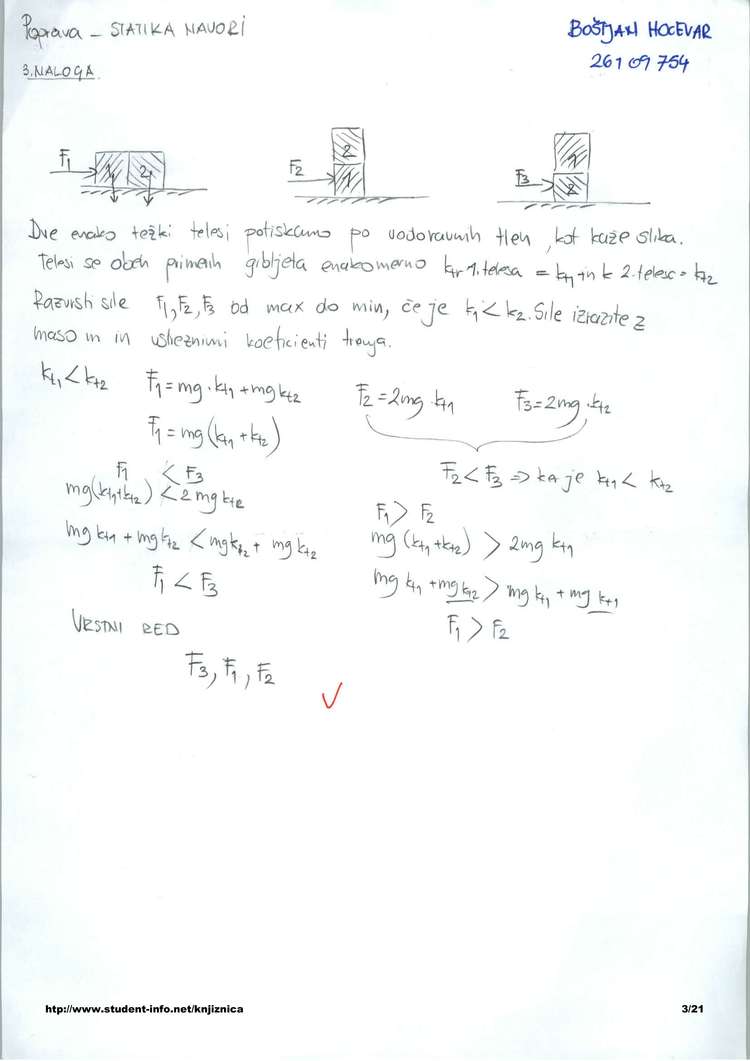 Poprava - STATIKA NAVORI
BOŠTJAN HOČEVAR
26109754
3. NALOGA
F₁ 1 2
F₂ 2 1
F₃ 1 2
Dve enako težki telesi potiskamo po vodoravnih tleh, kot kaže slika.
Telesi se obeh primerih gibljeta enakomerno ktr 1. telesa = kt1 in k 2. telesc = kt2
Razvrsti sile F₁, F₂, F₃ od max do min, če je k₁ < k₂. Sile izrazite z
maso m in ustreznimi koeficienti trenja.
kt1 < kt2 F₁ = mg · kt1 + mg kt2 F₂ = 2mg · kt1 F₃ = 2mg · kt2
F₁ = mg (kt1 + kt2)
F₂ < F₃ => ka je kt1 < kt2
F₁ < F₃
mg(kt1+kt2) < 2mg kt2
mg kt1 + mg kt2 < mg kt2 + mg kt2
F₁ < F₃
F₁ > F₂
mg (kt1+kt2) > 2mg kt1
mg kt1 + mg kt2 > mg kt1 + mg kt1
F₁ > F₂
VRSTNI RED
F₃, F₁, F₂
http://www.student-info.net/knjiznica 3/21